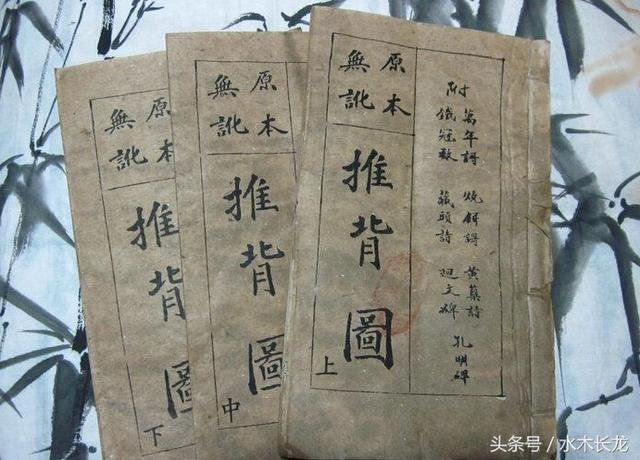 附
萬年謌 燒餅謌 黃蘗詩 孔明碑
鐵冠數 藏頭詩 廻文碑
原本
無訛
推背圖
上
原本
無訛
推背圖
中
原本
無訛
推背圖
下
头条号／水木长龙